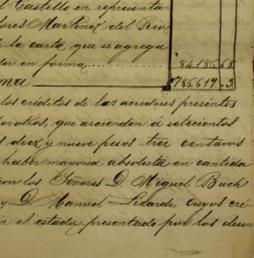 Castillo en representa
ores Martinez del Rio,
la carta, que se agrega
der en forma 84.186.68
ma 786.619-3
los créditos de los acredores presentes
votros, que ascienden á setecientos
diez y nueve pesos tres centavos
haber mayoria absoluta en cantida
con los Señores D. Miguel Buch
y D. Manuel Lizardi cuyos cré
n el estado presentado por los